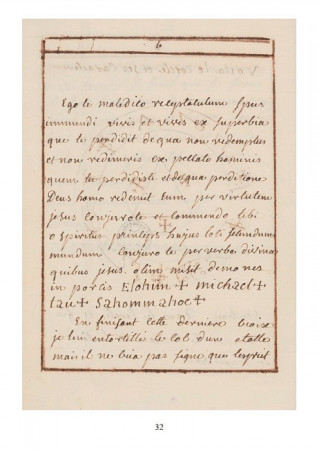 6
Ego te maledico receptatulum Spus
immundi vivis et vivis ex superbia
que te perdidit de qua non redemptus
et non redimeris ex pellato hominis
quem te perdidisti et de qua perditione
Deus homo redemit Eum per virtutem
jesus conjurote et commendo tibi
o Spiritus princips hujus loli
mundum conjuro te per verba divina
quibus jesus olim misit demones
in porcis Elohim + michael +
tau + Sahommahoc +
En finisant cette derniere
je lui entortillé le col dune etolle
mais il ne bia pas signe que lesprit
32